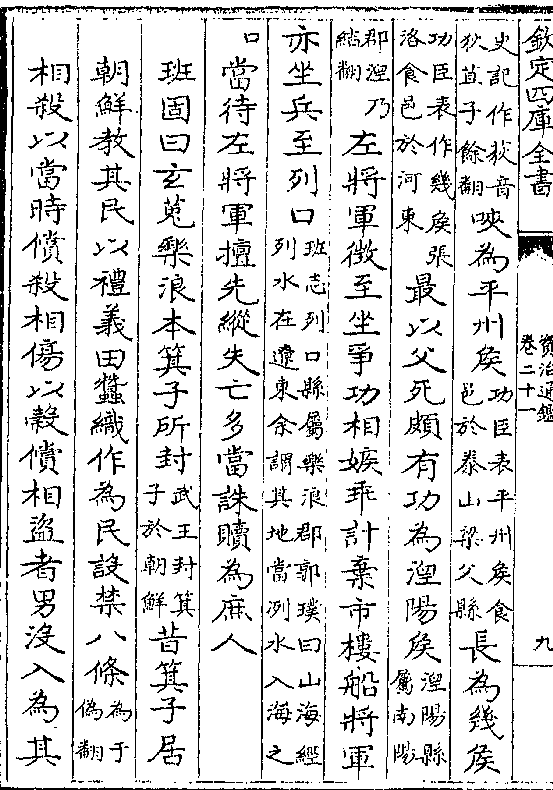 欽定四庫全書
資治通鑑
卷二十一
九
史記作荻音
狄苴子餘翻
唊為平州侯
功臣表平州侯食
邑於泰山梁父縣
長為幾侯
功臣表作幾侯張
洛食邑於河東
最以父死頗有功為湼陽侯
湼陽縣
屬南陽
郡湼乃
結翻
左將軍徵至坐爭功相嫉乖計棄市樓船將軍
亦坐兵至列口
班志列口縣屬樂浪郡郭璞曰山海經
列水在遼東余謂其地當洌水入海之
口
當待左將軍擅先縱失亡多當誅贖為庶人
班固曰玄菟樂浪本箕子所封
武王封箕
子於朝鮮
昔箕子居
朝鮮教其民以禮義田蠶織作為民設禁八條
為于
偽翻
相殺以當時償殺相傷以穀償相盜者男沒入為其